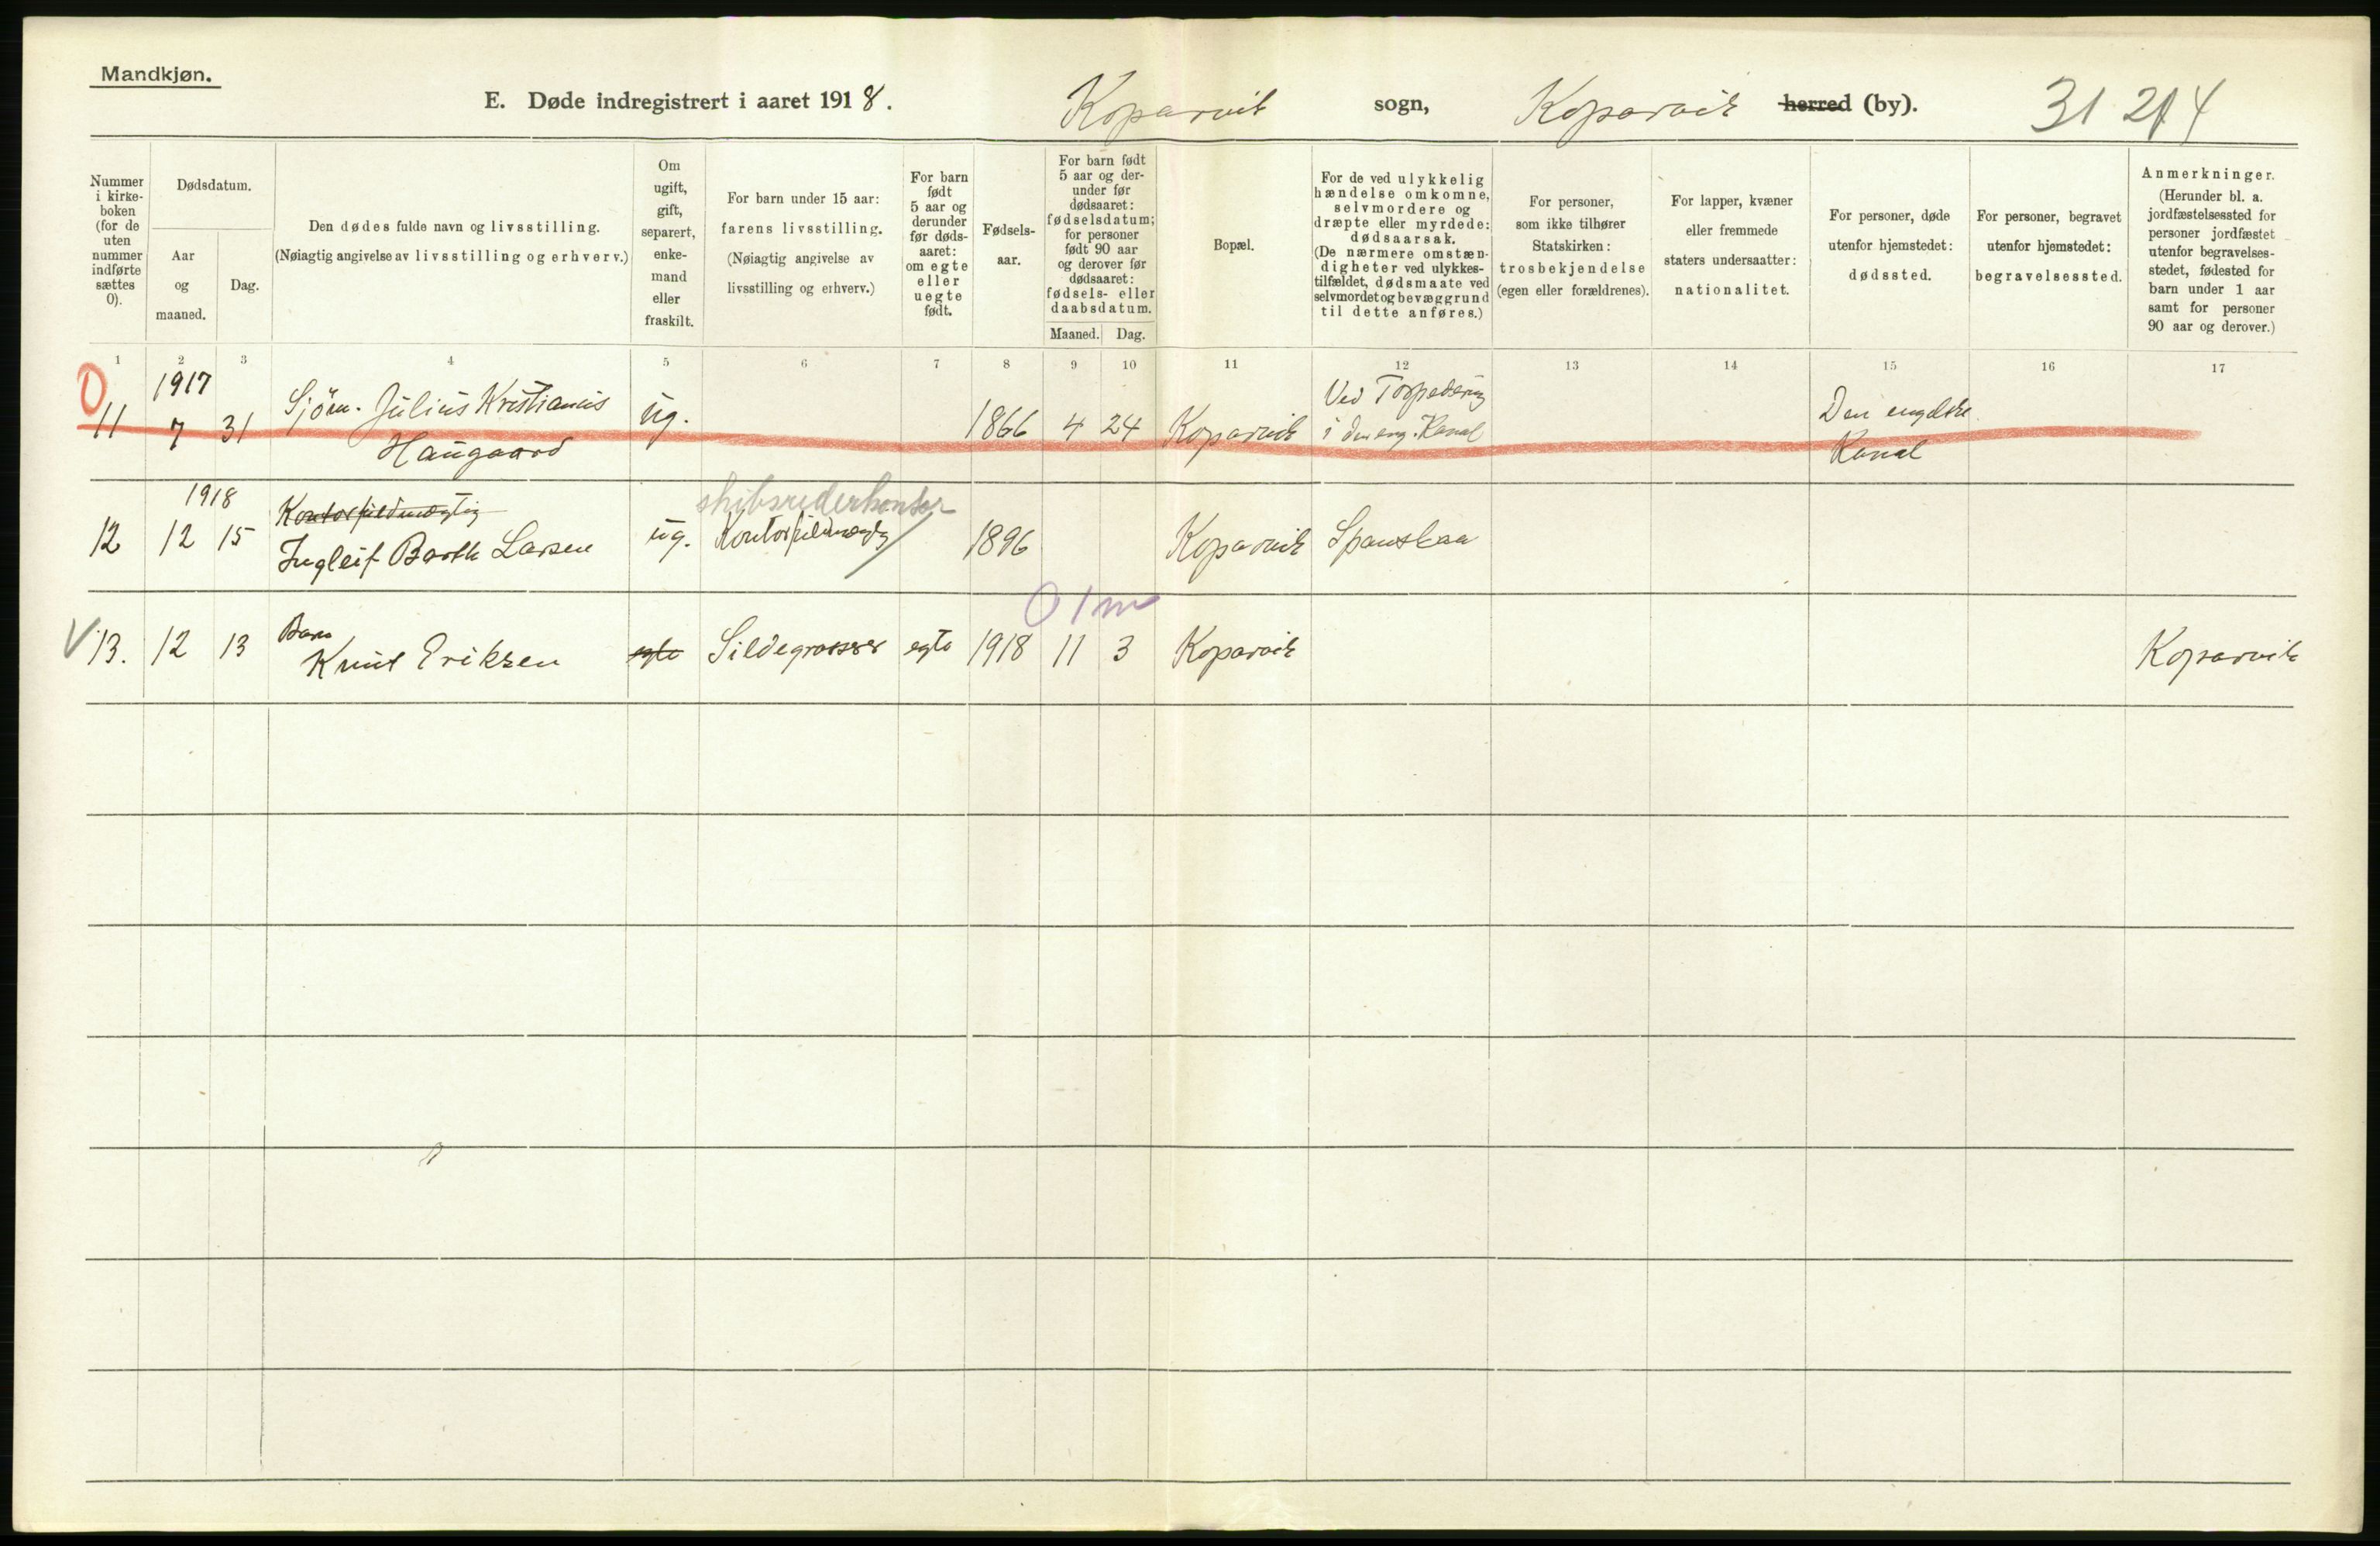 Mandkjøn.
E. Døde indregistrert i aaret 1918. Kopervik sogn, Kopervik herred (by). 31 214
Nummer i kirkeboken (for de uten nummer indførte sættes 0).
Dødsdatum.
Aar og maaned.
Dag.
Den dødes fulde navn og livsstilling.
(Nøiagtig angivelse av livsstilling og erhverv.)
Om ugift, gift, separert, enkemand eller fraskilt.
For barn under 15 aar: farens livsstilling. (Nøiagtig angivelse av livsstilling og erhverv.)
For barn født 5 aar og derunder før dødsaaret: om egte eller uegte født.
Fødselsaar.
For barn født 5 aar og derunder før dødsaaret: fødselsdatum; for personer født 90 aar og derover før dødsaaret: fødsels- eller daabsdatum.
Maaned. Dag.
Bopæl.
For de ved ulykkelig hændelse omkomne, selvmordere og dræpte eller myrdede: dødsaarsak. (De nærmere omstændigheter ved ulykkestilfældet, dødsmaate ved selvmordet og bevæggrund til dette anføres.)
For personer, som ikke tilhører Statskirken: trosbekjendelse (egen eller forældrenes).
For lapper, kvæner eller fremmede staters undersaatter: nationalitet.
For personer, døde utenfor hjemstedet: dødssted.
For personer, begravet utenfor hjemstedet: begravelsessted.
Anmerkninger. (Herunder bl. a. jordfæstelsessted for personer jordfæstet utenfor begravelsesstedet, fødested for barn under 1 aar samt for personer 90 aar og derover.)
1 2 3 4 5 6 7 8 9 10 11 12 13 14 15 16 17
0 1917
11 7 31 Sjöm. Julius Kristianus Haugaard ug. 1866 4 24 Kopervik Ved Torpedering i den eng. Kanal Den engelske Kanal
1918
12 12 15 Kontorfuldmægtig Ingleif Barth Larsen ug. skibsrederkontor Kontorfuldmægtig 1896 Kopervik Spanskaa
0 1 m
V 13. 12 13 Barn Knut Eriksen egte Sildegrosser egte 1918 11 3 Kopervik Kopervik